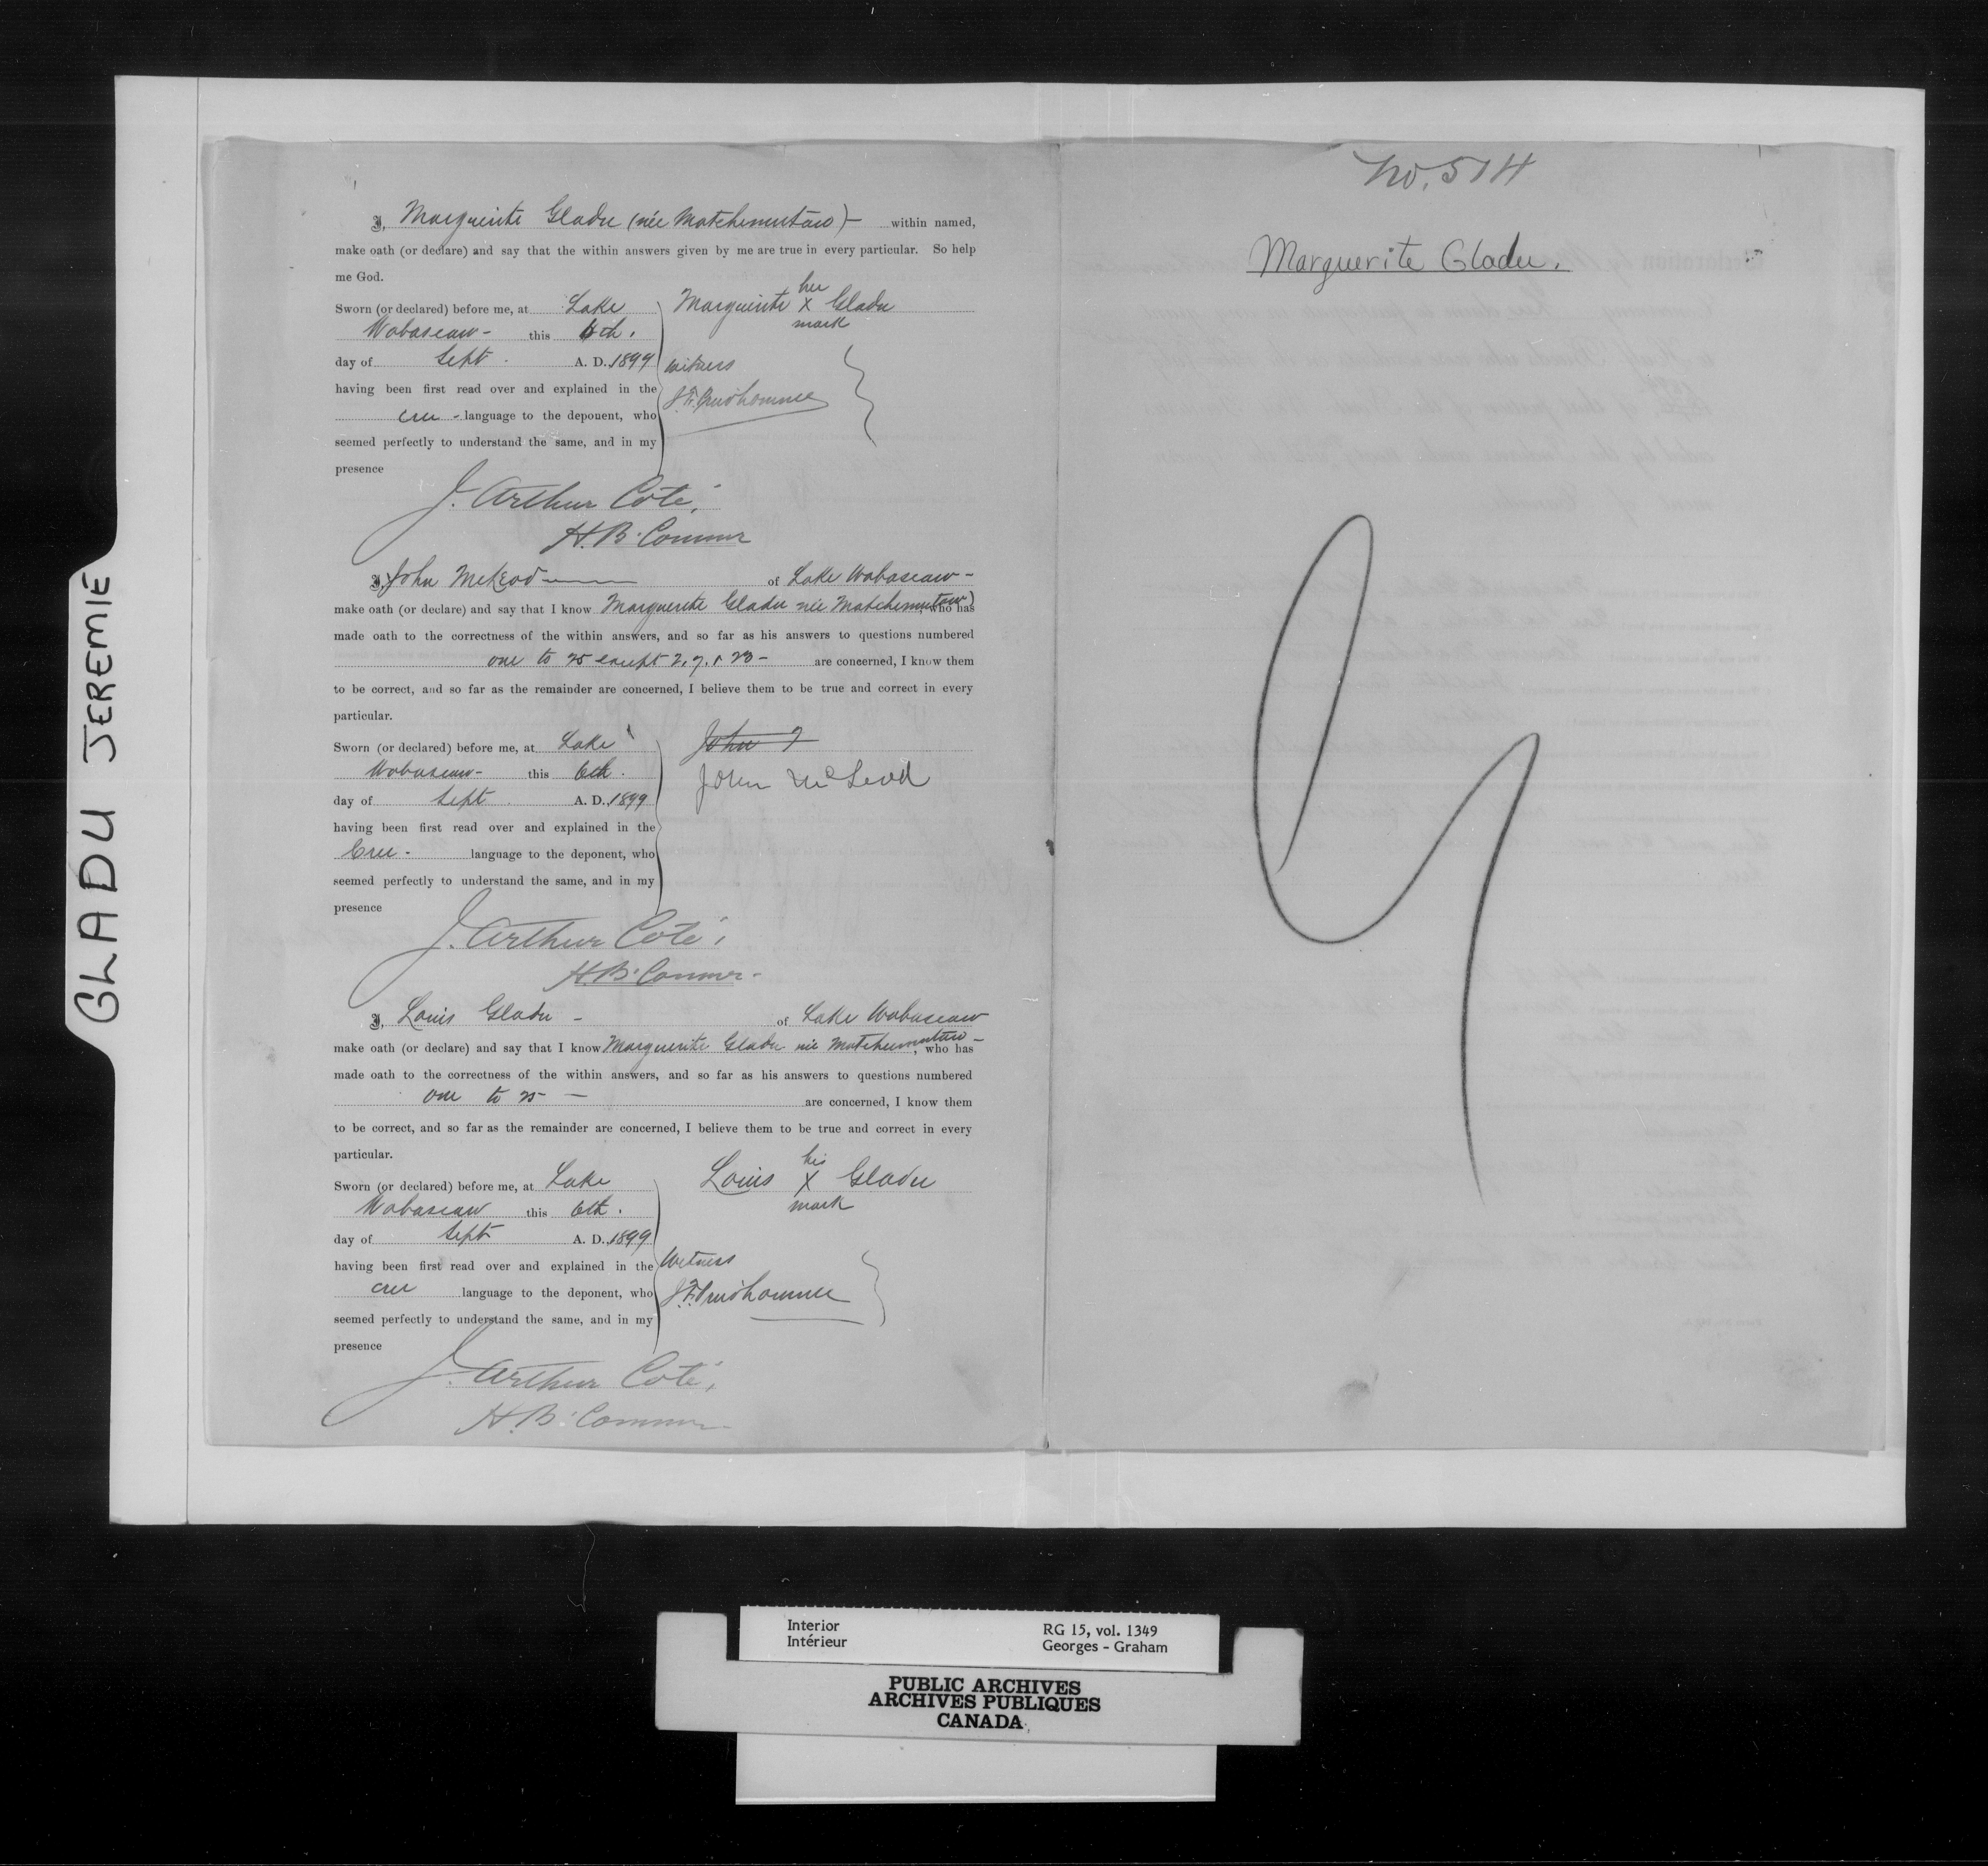 GLADU JEREMIE
I, Marguerite Gladu (née Matchemutaw) — within named,
make oath (or declare) and say that the within answers given by me are true in every particular. So help
me God.
Sworn (or declared) before me, at Lake
Wabascaw - this 6th.
day of Sept. A. D. 1899
having been first read over and explained in the
cree - language to the deponent, who
seemed perfectly to understand the same, and in my
presence
her
Marguerite X Gladu
mark
Witness
J. F. Prudhomme
J. Arthur Coté,
H. B. Commr
I, John McLeod — of Lake Wabascaw -
make oath (or declare) and say that I know Marguerite Gladu née Matchemutaw), who has
made oath to the correctness of the within answers, and so far as his answers to questions numbered
one to 25 except 2, 7, & 23 - are concerned, I know them
to be correct, and so far as the remainder are concerned, I believe them to be true and correct in every
particular.
Sworn (or declared) before me, at Lake
Wabascaw - this 6th.
day of Sept. A. D. 1899
having been first read over and explained in the
Cree - language to the deponent, who
seemed perfectly to understand the same, and in my
presence
John
John McLeod
J. Arthur Coté,
H. B. Commr -
I, Louis Gladu - of Lake Wabascaw
make oath (or declare) and say that I know Marguerite Gladu née Matchemutaw -, who has
made oath to the correctness of the within answers, and so far as his answers to questions numbered
one to 25 — are concerned, I know them
to be correct, and so far as the remainder are concerned, I believe them to be true and correct in every
particular.
Sworn (or declared) before me, at Lake
Wabascaw this 6th.
day of Sept A. D. 1899
having been first read over and explained in the
cree language to the deponent, who
seemed perfectly to understand the same, and in my
presence
his
Louis X Gladu
mark
Witness
J. F. Prudhomme
J. Arthur Coté,
H. B. Commr
No. 514
Marguerite Gladu.
Interior
Intérieur
RG 15, vol. 1349
Georges - Graham
PUBLIC ARCHIVES
ARCHIVES PUBLIQUES
CANADA